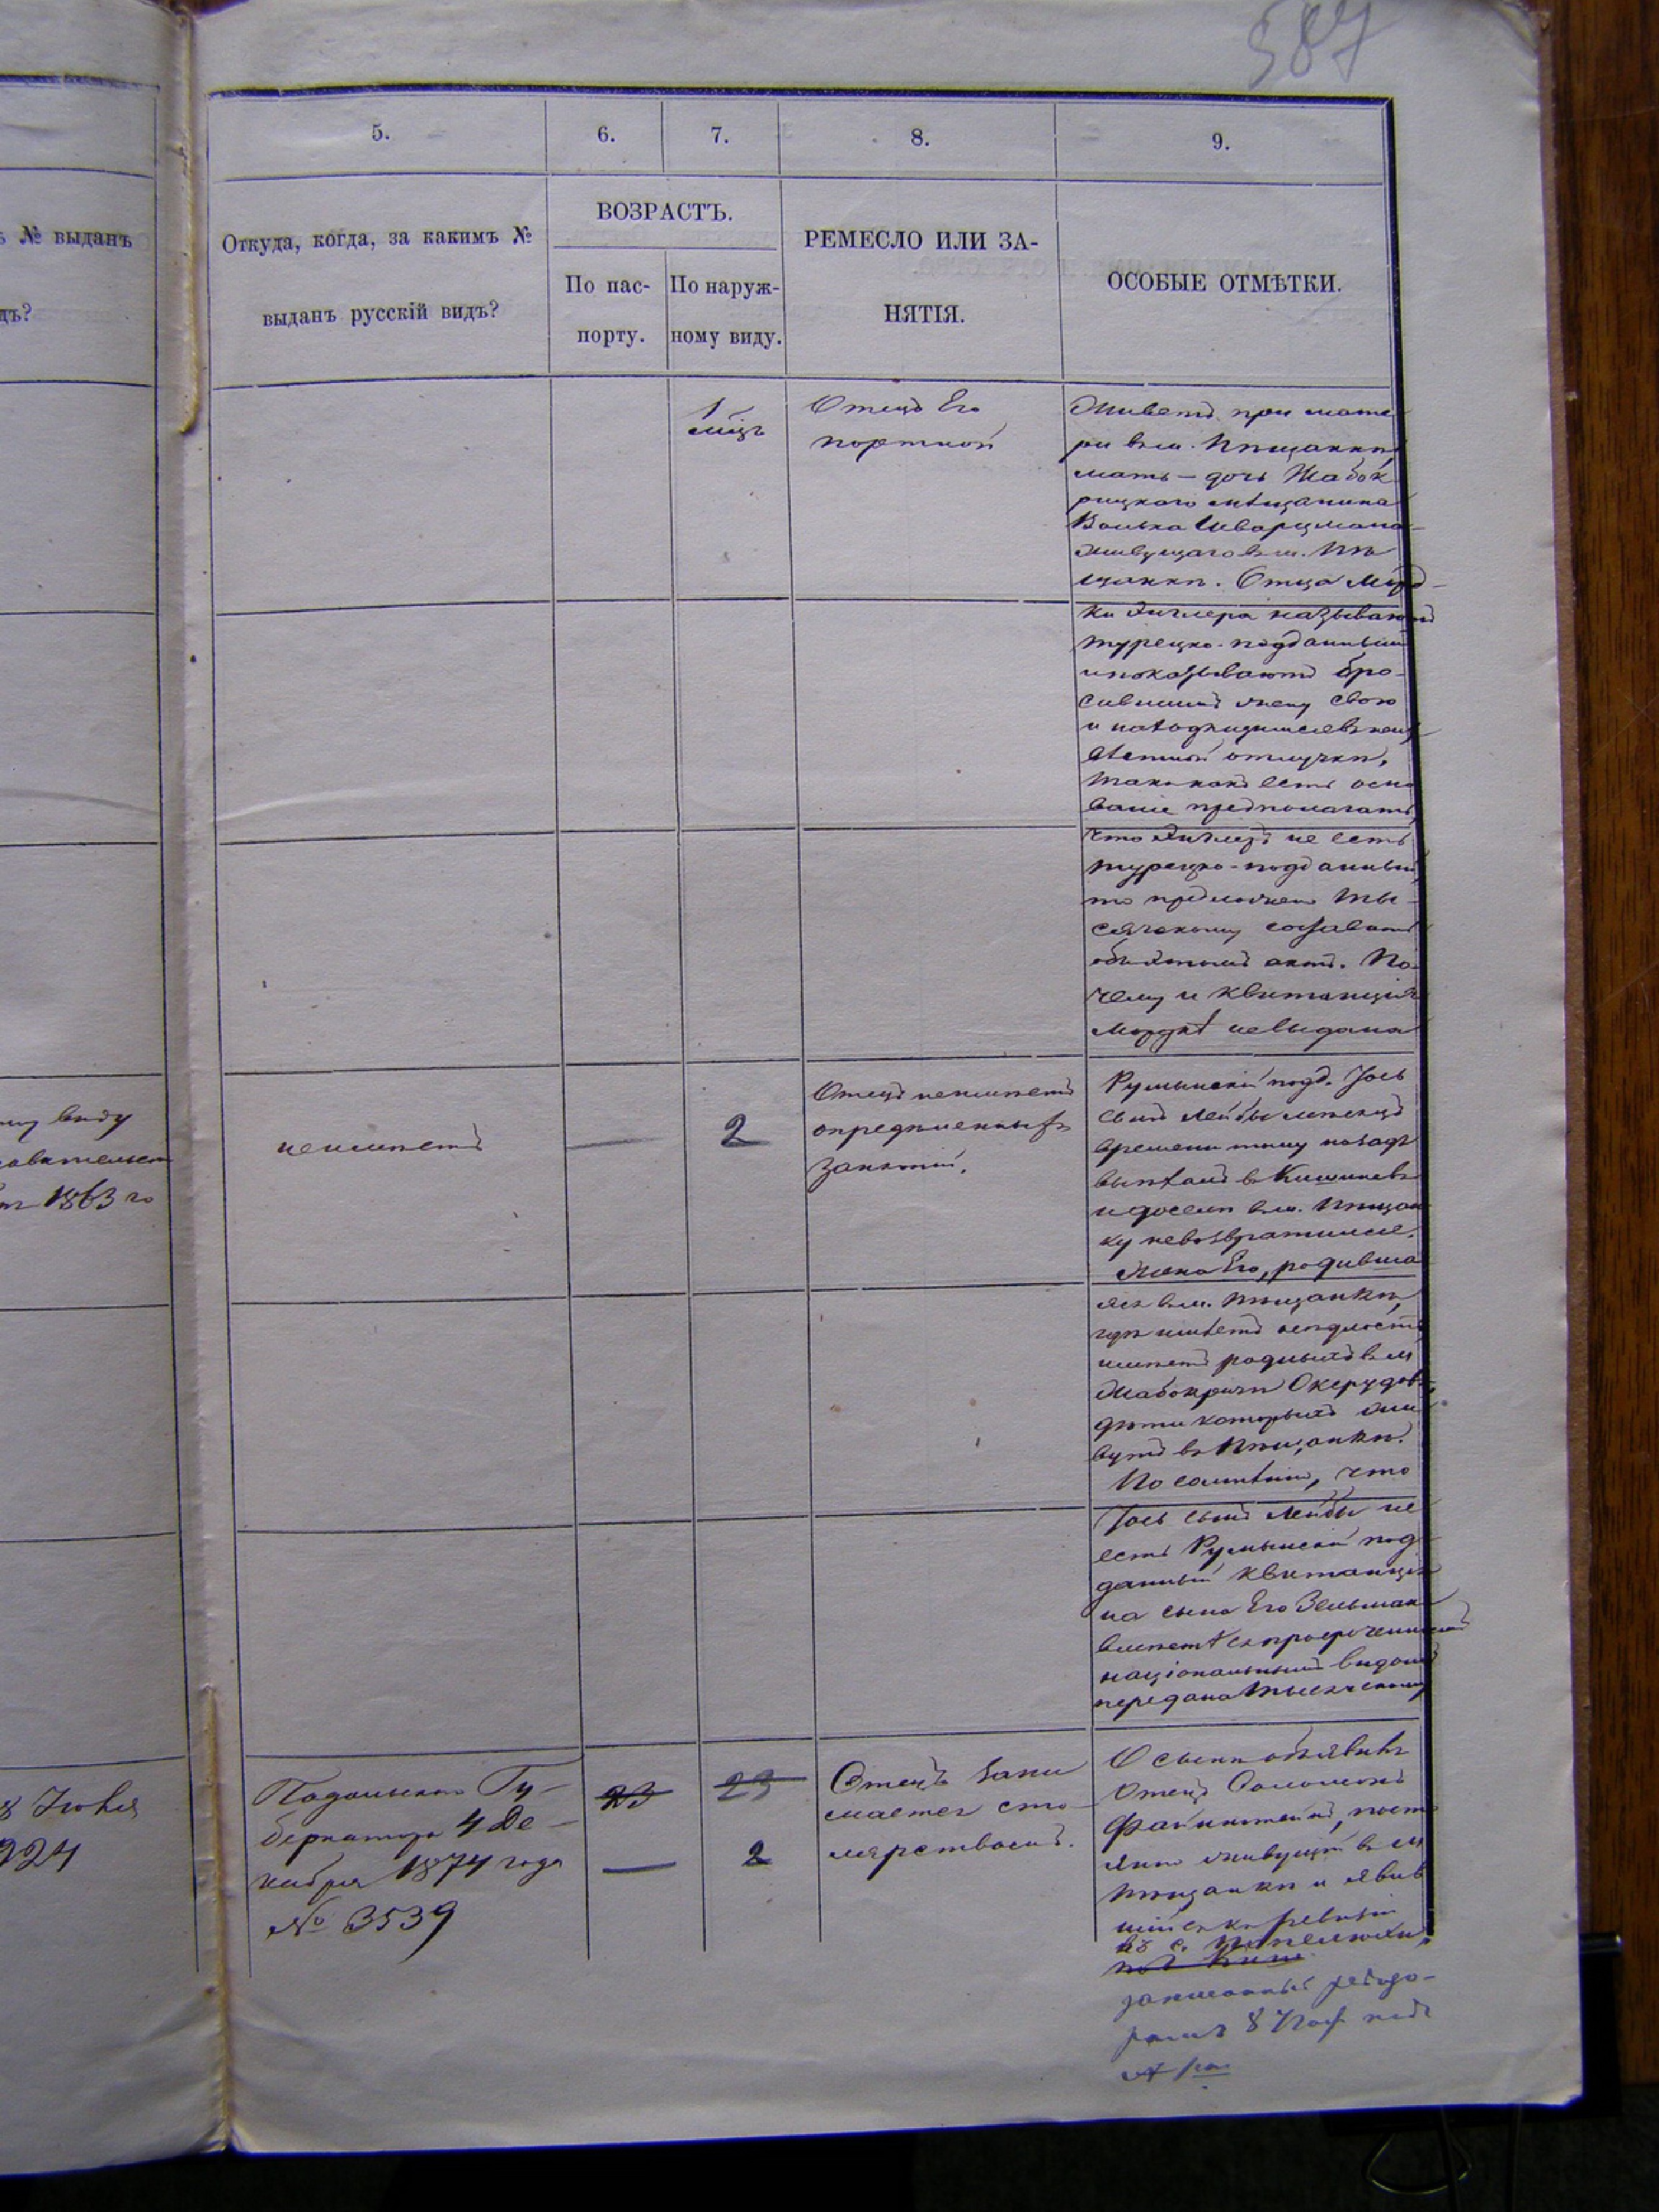 587
5.
6.
7.
8.
9.
№ выданъ
дъ?
Откуда, когда, за какимъ №
выданъ русскій видъ?
ВОЗРАСТЪ.
По пас-
порту.
По наруж-
ному виду.
РЕМЕСЛО ИЛИ ЗА-
НЯТІЯ.
ОСОБЫЕ ОТМѢТКИ.
1
мѣц
Отецъ Его
портной
Живетъ при мате
ри въ м. Пѣщанкѣ
мать – дочь Жабок
рицкаго мѣщанина
Волька Шварцмана
живущаго въ м. Пѣ
щанкѣ. Отца Морд-
ки называютъ
турецко-подданнымъ
и показываютъ бро-
сившимъ жену свою
и находящимся въ неиз
вѣстной отлучкѣ,
такъ какъ есть осно
ваніе предполагать,
что не есть
турецко-подданный,
то предложено Ты-
сяцкому составить
объ этомъ актъ. По
чему и квитанція
Мордкѣ не выдана
ному виду
1863 го
неимѣетъ
—
2
Отецъ неимѣетъ
опредѣленныхъ
занятій.
Румынскій подд. Іось
сынъ Лейбы мѣсяцъ
времени тому назадъ
выѣхалъ въ Кишиневъ
и доселѣ въ м. Пѣщан
ку невозвратился.
Жена Его, родивша
яся въ м. Пѣщанкѣ,
гдѣ имѣетъ осѣдлость
имѣетъ родныхъ въ м
Жабокричѣ
дѣти которыхъ жи
вутъ въ Пѣщанкѣ.
По сомнѣнію, что
Іось сынъ Лейбы не
есть Румынскій под-
данный квитанція
на сына Его Зельмана
вмѣстѣ съ просроченнымъ
національнымъ видомъ
передана Тысяцкому
8 Іюня
924
Подольскаго Гу-
бернатора 4 Де-
кабря 1874 года
№ 3539
23
—
23
2
Отецъ зани
мается сто-
лярствомъ.
О сынѣ объявилъ
отецъ Соломонъ
Файнштейнъ, посто
янно живущій въ м
Пѣщанкѣ и явив
шійся къ ревизіи
въ с. Попелюхи,
записанный
8 под